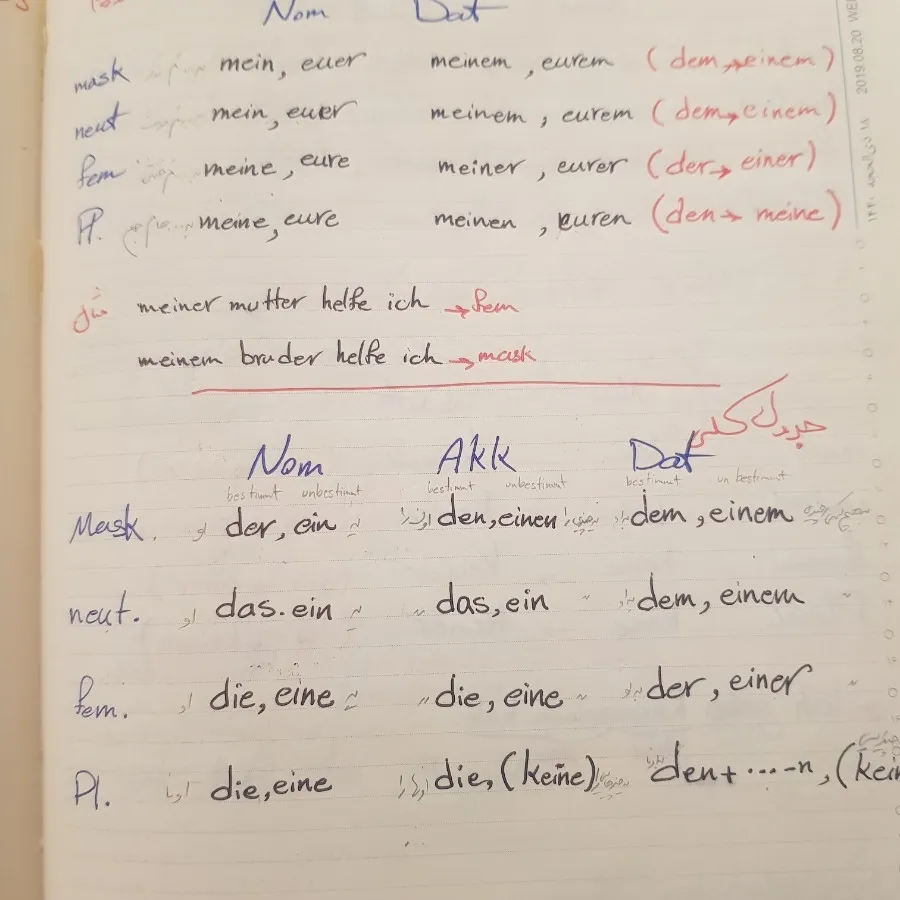 Nom Dat
mask mein, euer meinem, eurem (dem→einem)
neut mein, euer meinem, eurem (dem→einem)
fem meine, eure meiner, eurer (der→einer)
Pl. meine, eure meinen, euren (den→meine)
مثال meiner mutter helfe ich → fem
meinem bruder helfe ich → mask
جدول کلی
Nom Akk Dat
bestimmt unbestimmt bestimmt unbestimmt bestimmt unbestimmt
Mask. او der, ein den, einen dem, einem
neut. او das. ein das, ein dem, einem
fem. او die, eine die, eine der, einer
Pl. die, eine die, (keine) den+ ....-n, (kein
2019.08.20 WE